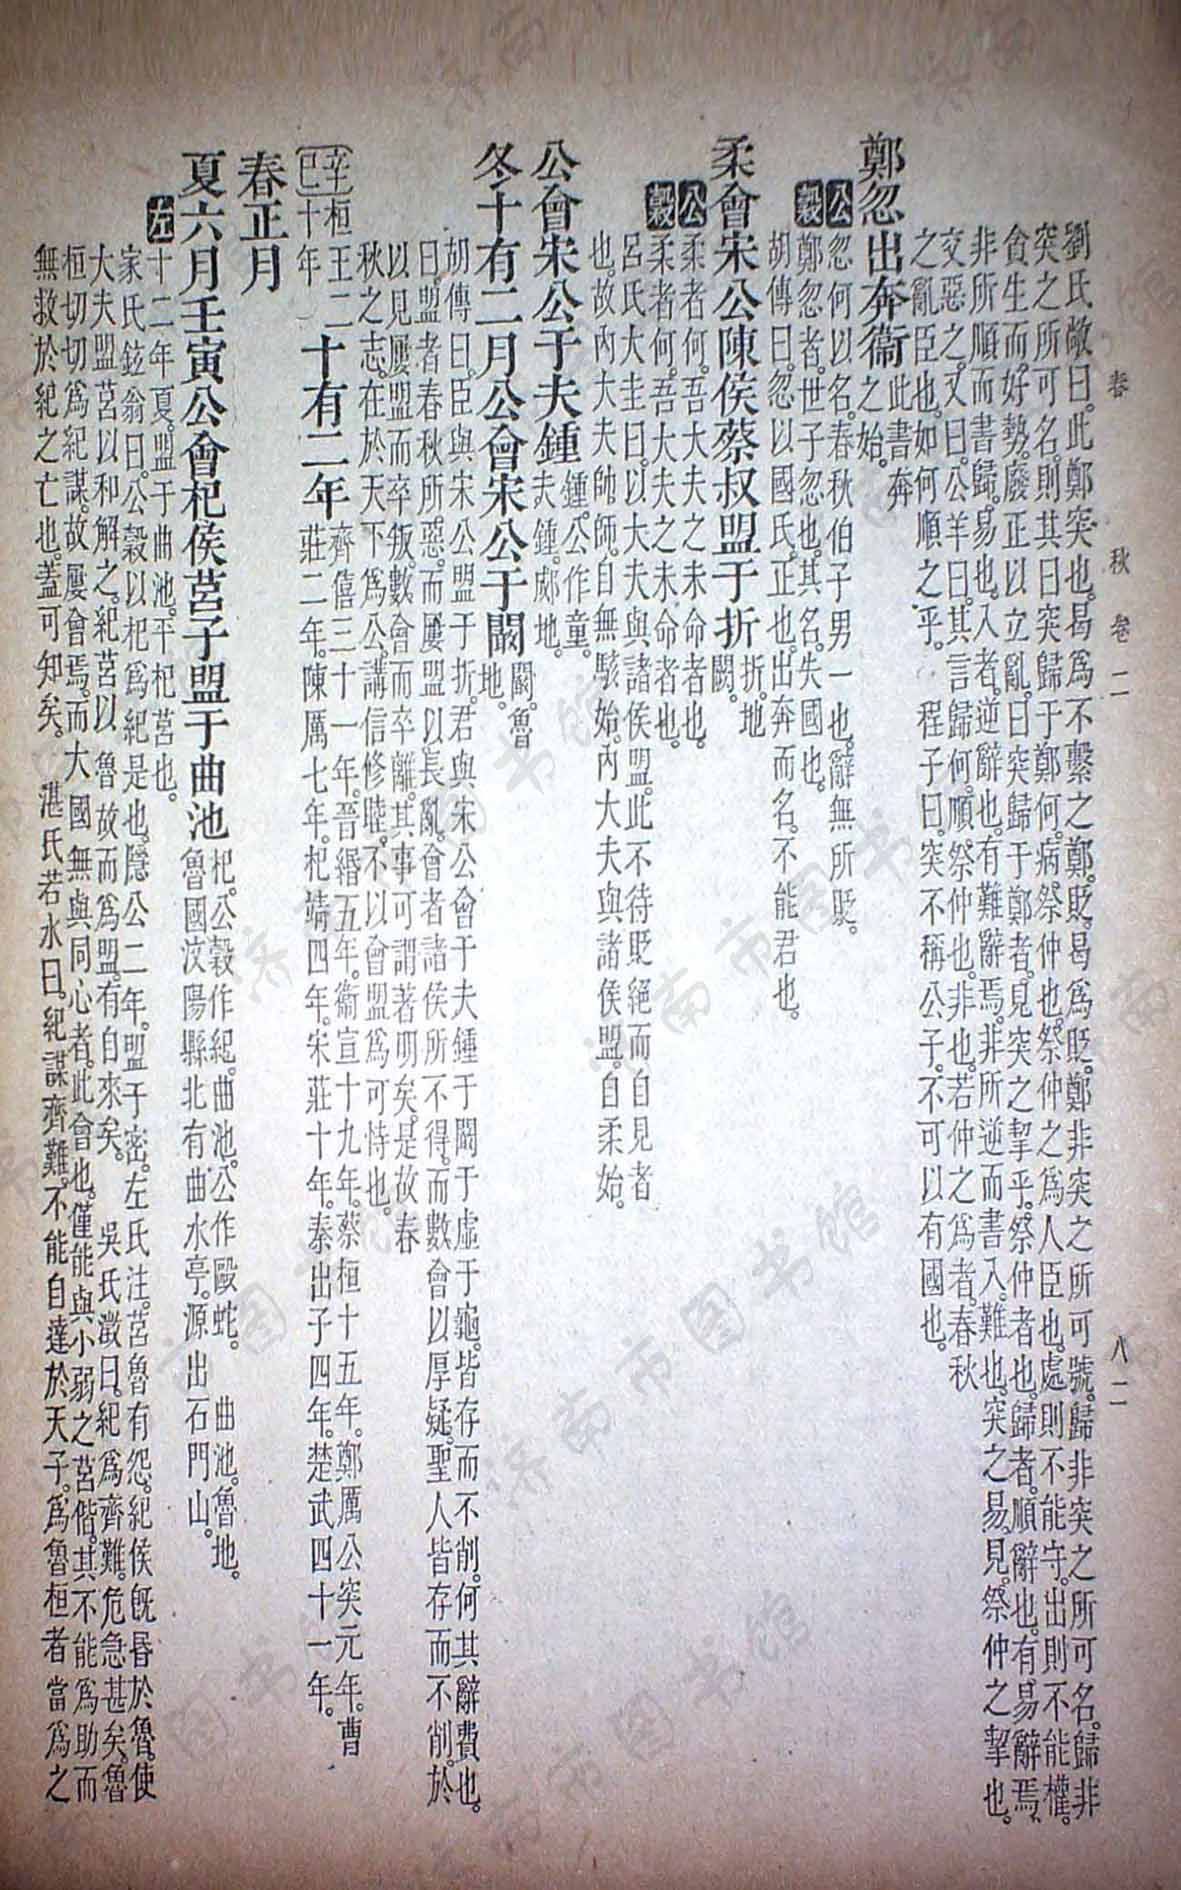 春秋 卷二 八二
劉氏敞曰。此鄭突也。曷爲不繫之鄭。貶。曷爲貶。鄭非突之所可號。歸非突之所可名。歸非
突之所可名。則其曰突歸于鄭何。病祭仲也。祭仲之爲人臣也。處則不能守。出則不能權。
貪生而好勢。廢正以立亂。曰突歸于鄭者。見突之挈乎祭仲者也。歸者。順辭也。有易辭焉。
非所順而書歸。易也。入者。逆辭也。有難辭焉。非所逆而書入。難也。突之易。見祭仲之挈也。
交惡之。又曰。公羊曰。其言歸何。順祭仲也。非也。若仲之爲者。春秋
之亂臣也。如何順之乎。 程子曰。突不稱公子。不可以有國也。
鄭忽出奔衞 此書奔之始。
公 忽何以名。春秋伯子男一也。辭無所貶。
穀 鄭忽者。世子忽也。其名。失國也。
胡傳曰。忽以國氏。正也。出奔而名。不能君也。
柔會宋公陳侯蔡叔盟于折 折。地闕。
公 柔者何。吾大夫之未命者也。
穀 柔者何。吾大夫之未命者也。
呂氏大圭曰。以大夫與諸侯盟。此不待貶絕而自見者
也。故內大夫帥師。自無駭始。內大夫與諸侯盟。自柔始。
公會宋公于夫鍾 鍾。公作童。夫鍾。郕地。
冬十有二月公會宋公于闞 闞。魯地。
胡傳曰。臣與宋公盟于折。君與宋公會于夫鍾于闞于虛于龜。皆存而不削。何其辭費也。
曰。盟者春秋所惡。而屢盟以長亂。會者諸侯所不得。而數會以厚疑。聖人皆存而不削。於
以見屢盟而卒叛。數會而卒離。其事可謂著明矣。是故春
秋之志。在於天下爲公。講信修睦。不以會盟爲可恃也。
辛巳 桓王二十年 十有二年 齊僖三十一年。晉緡五年。衞宣十九年。蔡桓十五年。鄭厲公突元年。曹
莊二年。陳厲七年。杞靖四年。宋莊十年。秦出子四年。楚武四十一年。
春正月
夏六月壬寅公會杞侯莒子盟于曲池 杞。公穀作紀。曲池。公作毆蛇。 曲池。魯地。
魯國汶陽縣北有曲水亭。源出石門山。
左 十二年夏。盟于曲池。平杞莒也。
家氏鉉翁曰。公穀以杞爲紀。是也。隱公二年。盟于密。左氏注。莒魯有怨。紀侯旣昏於魯。使
大夫盟莒以和解之。紀莒以魯故而爲盟。有自來矣。 吳氏澂曰。紀爲齊難。危急甚矣。魯
桓切切爲紀謀。故屢會焉。而大國無與同心者。此會也。僅能與小弱之莒偕。其不能爲助而
無救於紀之亡也。蓋可知矣。 湛氏若水曰。紀謀齊難。不能自達於天子。爲魯桓者當爲之